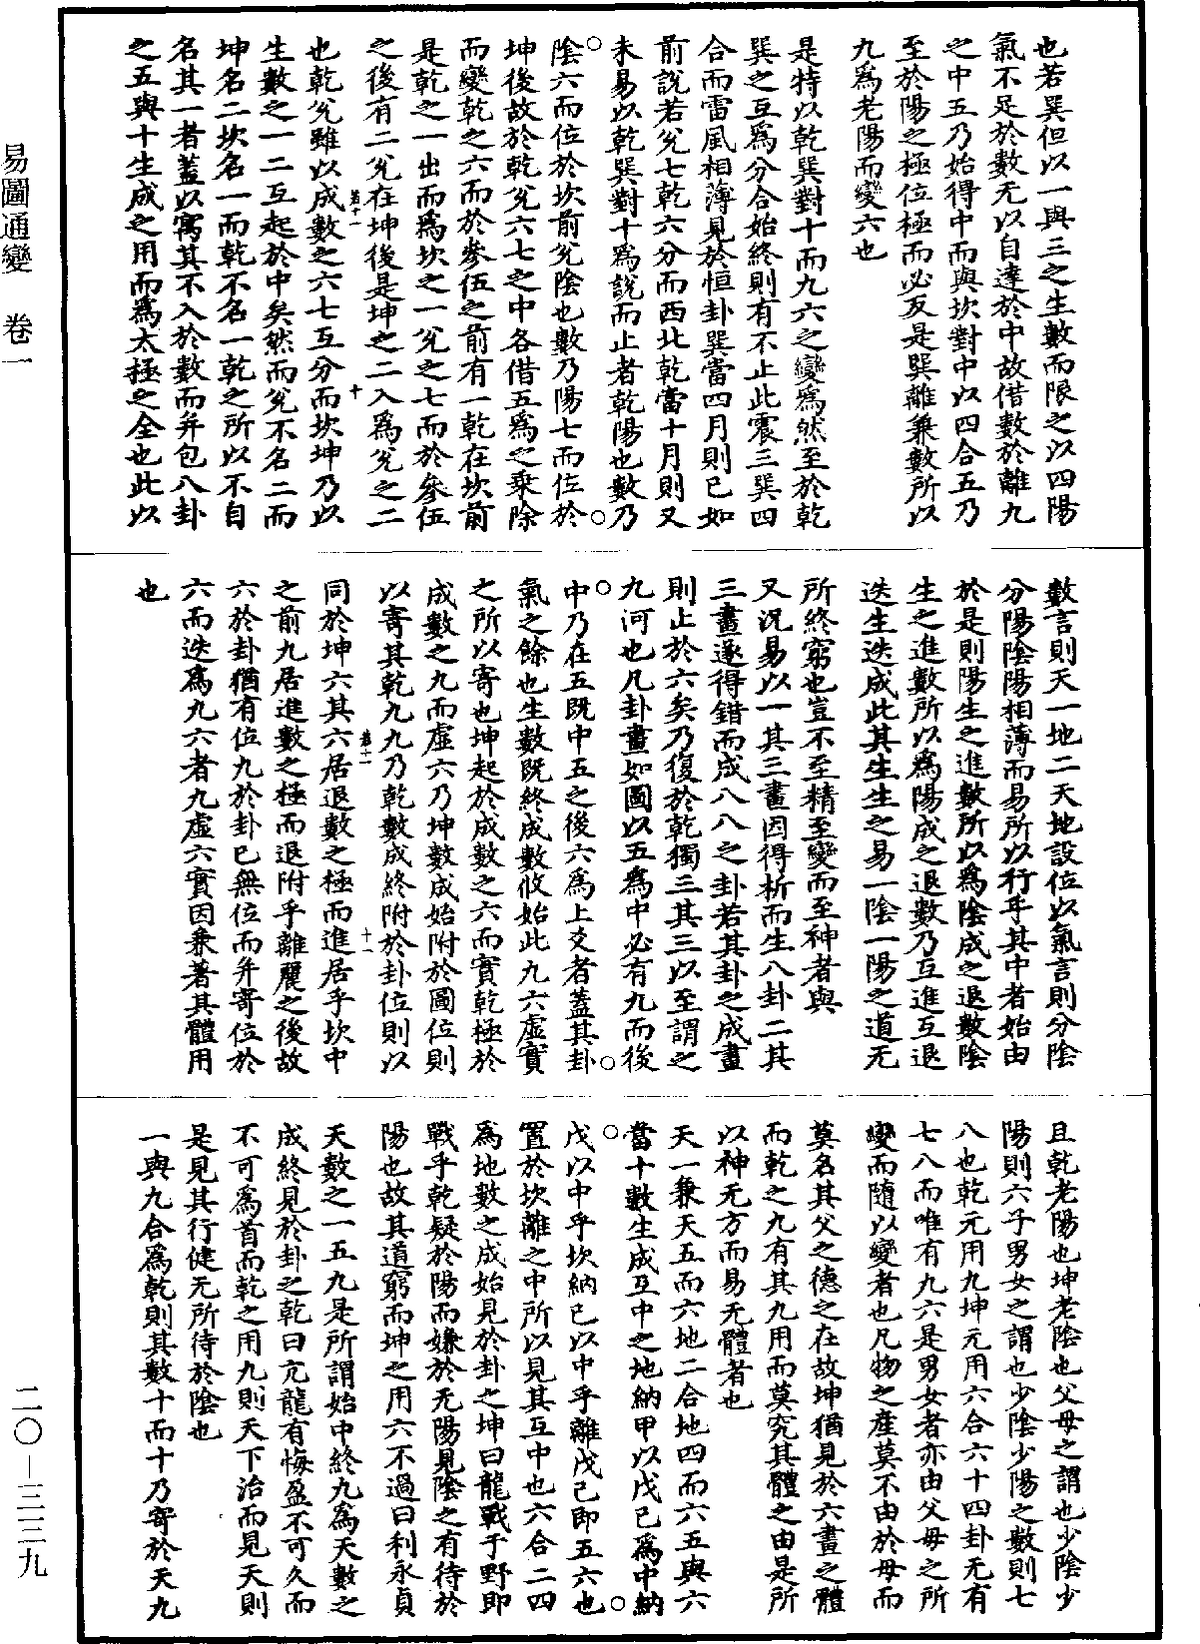 易圖通變　卷一
也若巽但以一與三之生數而限之以四陽
氣不足於數无以自達於中故借數於離九
之中五乃始得中而與坎對中以四合五乃
至於陽之極位極而必反是巽離兼數所以
九爲老陽而變六也
是特以乾巽對十而九六之變爲然至於乾
巽之互爲分合始終則有不止此震三巽四
合而雷風相薄見於恒卦巽當四月則已如
前說若兊七乾六分而西北乾當十月則又
未易以乾巽對十爲說而止者乾陽也數乃
陰六而位於坎前兊陰也數乃陽七而位於
坤後故於乾兊六七之中各借五爲之乘除
而變乾之六而於參伍之前有一乾在坎前
是乾之一出而爲坎之一兊之七而於參伍
之後有二兊在坤後是坤之二入爲兊之二
也乾兊雖以成數之六七互分而坎坤乃以
生數之一二互起於中矣然而兊不名二而
坤名二坎名一而乾不名一乾之所以不自
名其一者蓋以寓其不入於數而并包八卦
之五與十生成之用而爲太極之全也此以
數言則天一地二天地設位以氣言則分陰
分陽陰陽相薄而易所以行乎其中者始由
於是則陽生之進數所以爲陰成之退數陰
生之進數所以爲陽成之退數乃互進互退
迭生迭成此其生生之易一陰一陽之道无
所終窮也豈不至精至變而至神者與
又況易以一其三畫因得析而生八卦二其
三畫遂得錯而成八八之卦若其卦之成畫
則止於六矣乃復於乾獨三其三以至謂之
九何也凡卦畫如圖以五爲中必有九而後
中乃在五既中五之後六爲上爻者蓋其卦
氣之餘也生數既終成數攸始此九六虛實
之所以寄也坤起於成數之六而實乾極於
成數之九而虛六乃坤數成始附於圖位則
以寄其乾九九乃乾數成終附於卦位則以
同於坤六其六居退數之極而進居乎坎中
之前九居進數之極而退附乎離麗之後故
六於卦猶有位九於卦已無位而并寄位於
六而迭爲九六者九虛六實因兼著其體用
也
且乾老陽也坤老陰也父母之謂也少陰少
陽則六子男女之謂也少陰少陽之數則七
八也乾元用九坤元用六合六十四卦无有
七八而唯有九六是男女者亦由父母之所
變而隨以變者也凡物之産莫不由於母而
莫名其父之德之在故坤猶見於六畫之體
而乾之九有其九用而莫究其體之由是所
以神无方而易无體者也
天一兼天五而六地二合地四而六五與六
當十數生成互中之地納甲以戊己爲中納
戊以中乎坎納已以中乎離戊己即五六也
置於坎離之中所以見其互中也六合二四
爲地數之成始見於卦之坤曰龍戰于野即
戰乎乾疑於陽而嫌於无陽見陰之有待於
陽也故其道窮而坤之用六不過曰利永貞
天數之一五九是所謂始中終九爲天數之
成終見於卦之乾曰亢龍有悔盈不可久而
不可爲首而乾之用九則天下治而見天則
是見其行健无所待於陰也
一與九合爲乾則其數十而十乃寄於天九
二〇—三三九